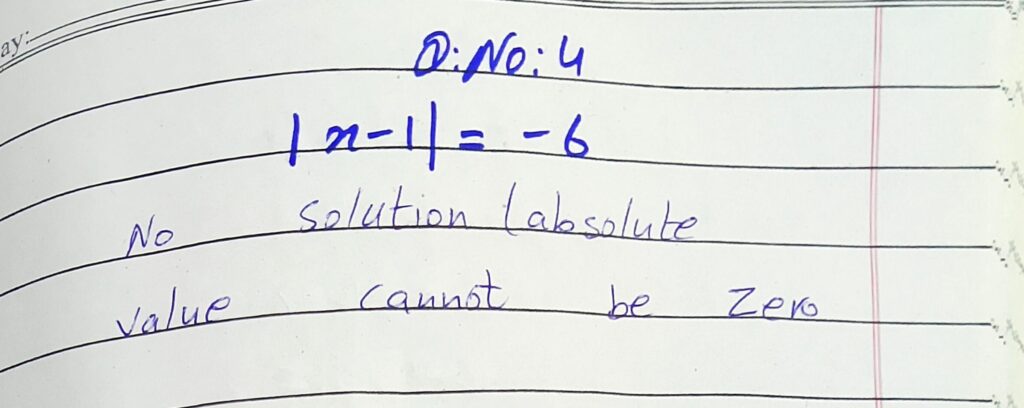 ay:
Q:No:4
|x-1| = -6
No solution (absolute
value cannot be zero